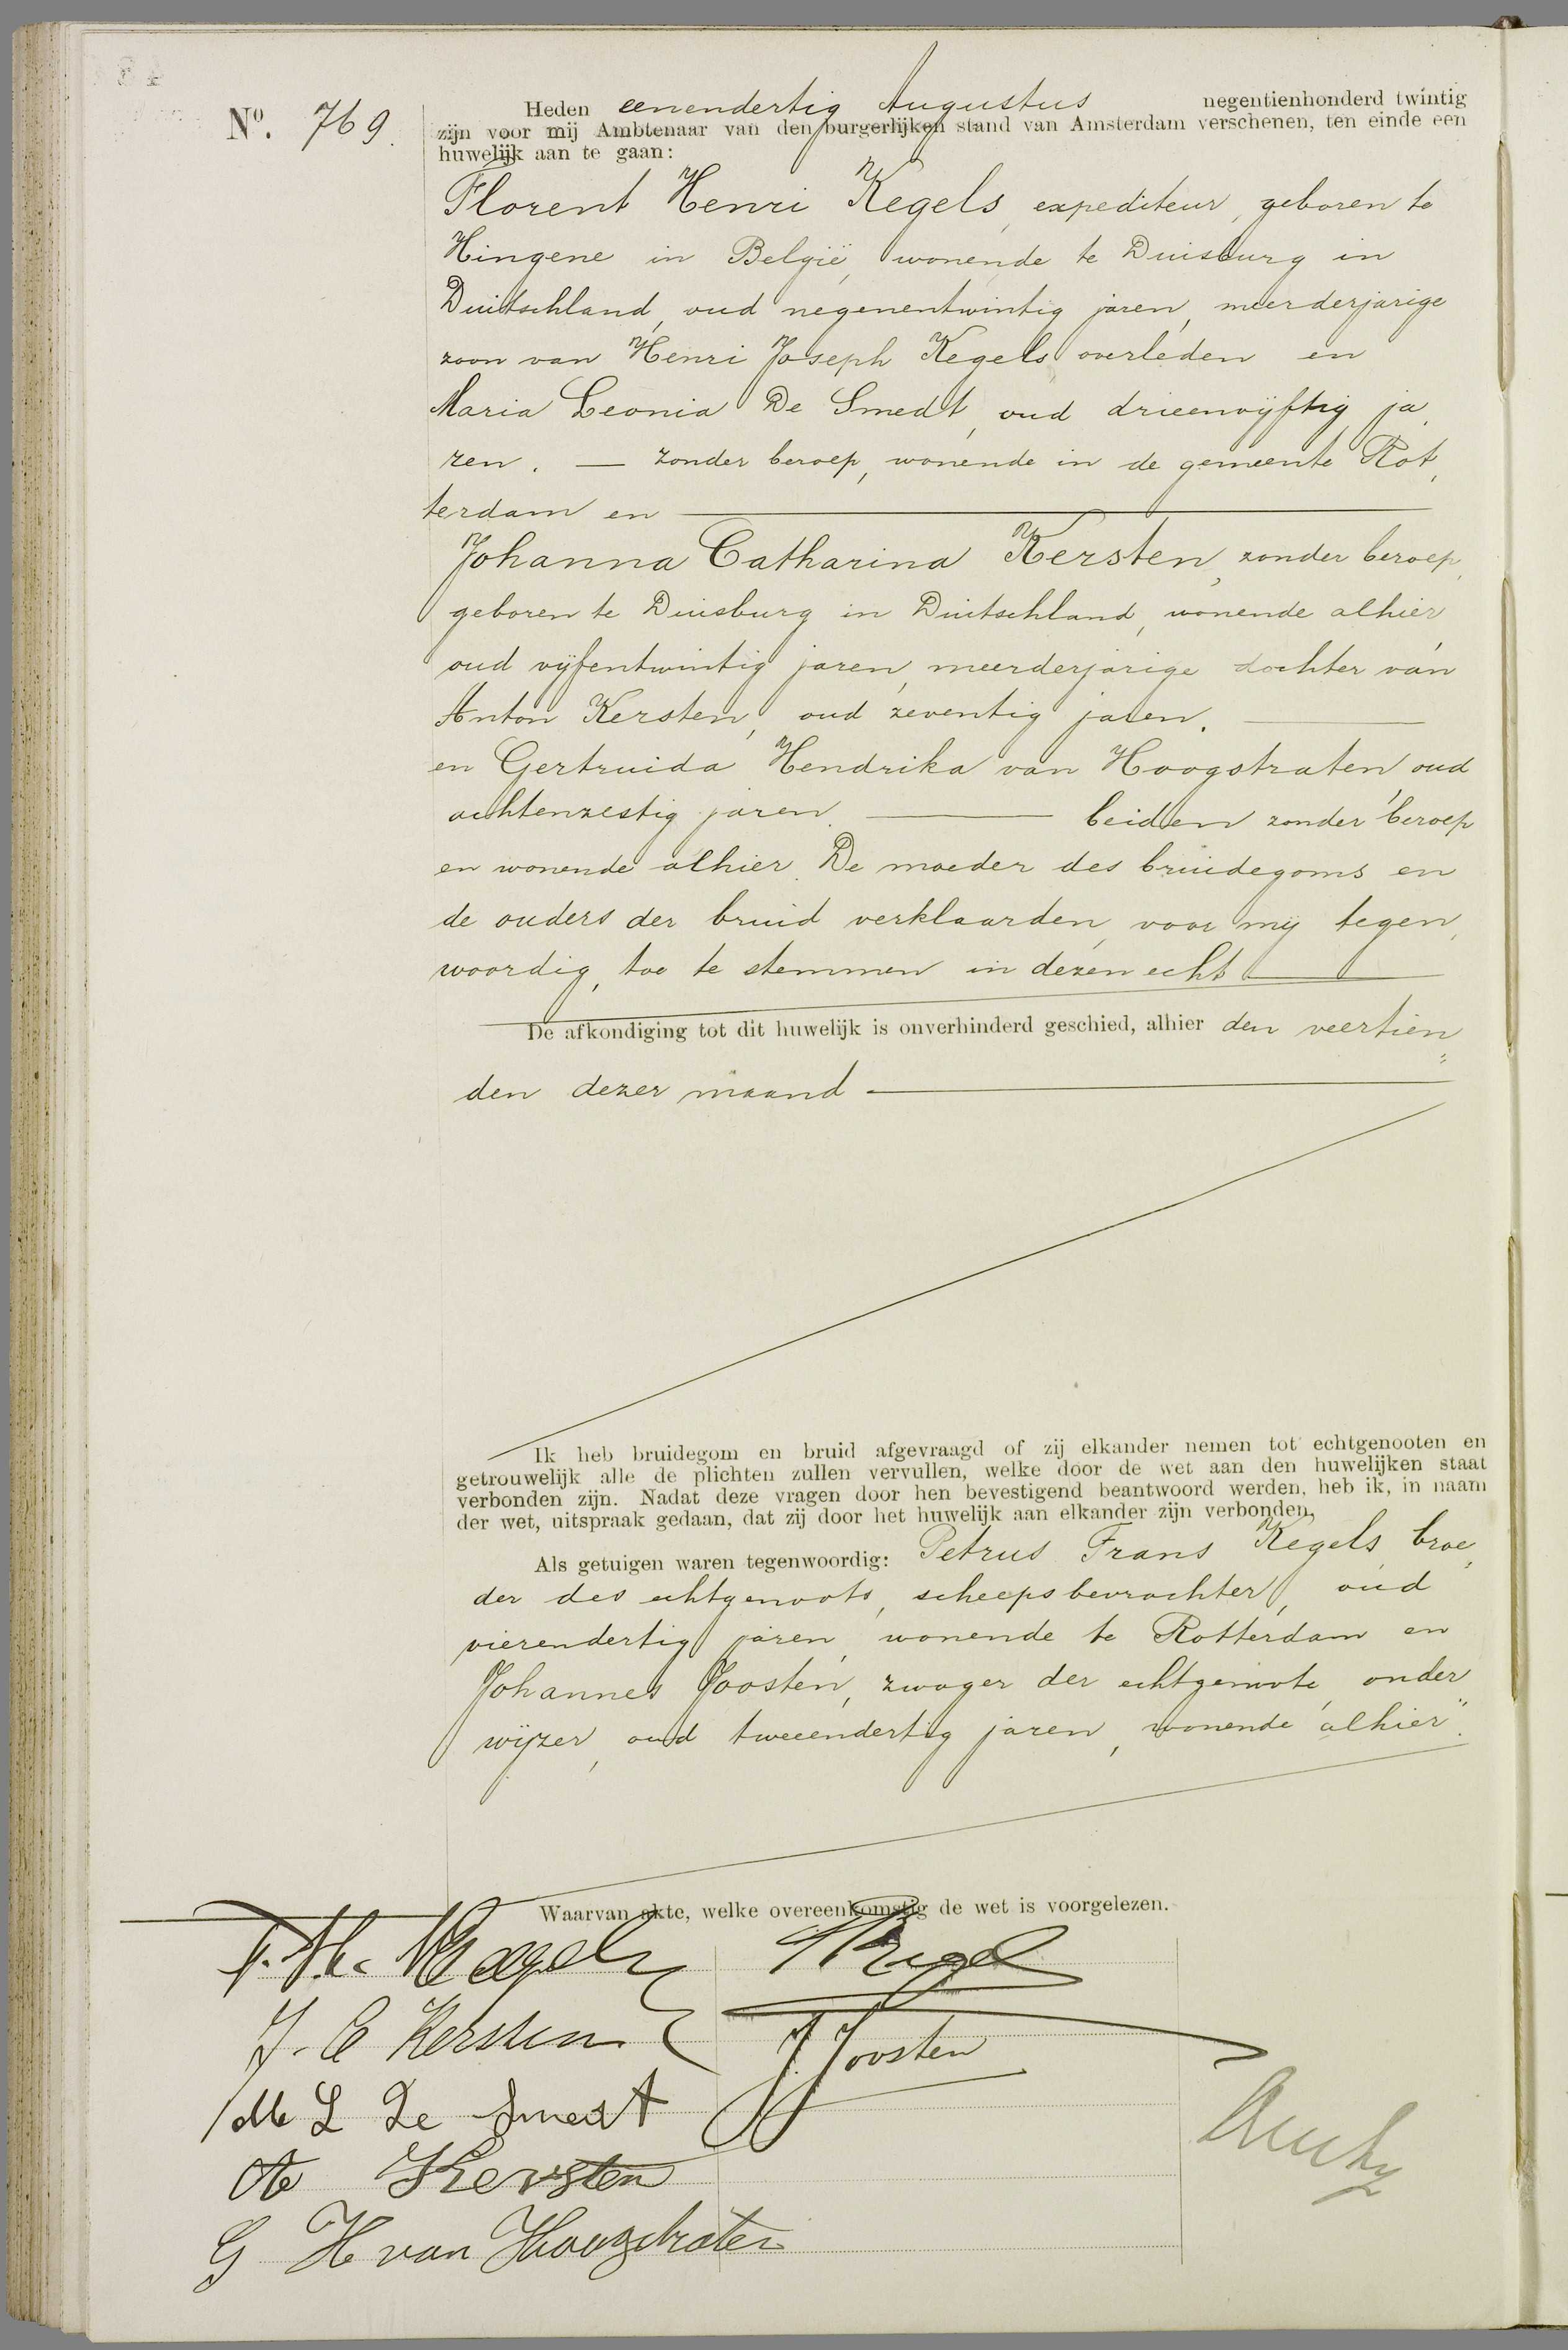 Nº. 769.
Heden eenendertig Augustus negentienhonderd twintig
zijn voor mij Ambtenaar van den burgerlijken stand van Amsterdam verschenen, ten einde een
huwelijk aan te gaan:
Florent Henri Kegels, expediteur, geboren te
Hingene in België, wonende te Duisburg in
Duitschland, oud negenentwintig jaren, meerderjarige
zoon van Henri Joseph Kegels overleden en
Maria Leonia De Smedt, oud drieenvijftig ja„
ren. — zonder beroep, wonende in de gemeente Rot„
terdam en —
Johanna Catharina Kersten, zonder beroep,
geboren te Duisburg in Duitschland, wonende alhier
oud vijfentwintig jaren, meerderjarige dochter van
Anton Kersten, oud zeventig jaren. —
en Gertruida Hendrika van Hoogstraten oud
achtenzestig jaren. — beiden zonder beroep
en wonende alhier. De moeder des bruidegoms en
de ouders der bruid verklaarden, voor mij tegen„
woordig, toe te stemmen in dezen echt —
De afkondiging tot dit huwelijk is onverhinderd geschied, alhier den veertien„
den dezer maand —
Ik heb bruidegom en bruid afgevraagd of zij elkander nemen tot echtgenooten en
getrouwelijk alle de plichten zullen vervullen, welke door de wet aan den huwelijken staat
verbonden zijn. Nadat deze vragen door hen bevestigend beantwoord werden, heb ik, in naam
der wet, uitspraak gedaan, dat zij door het huwelijk aan elkander zijn verbonden.
Als getuigen waren tegenwoordig: Petrus Frans Kegels, broe„
der des echtgenoots, scheepsbevrachter, oud
vierendertig jaren, wonende te Rotterdam en
Johannes Joosten, zwager der echtgenoote, onder„
wijzer, oud tweeendertig jaren, wonende alhier.
Waarvan akte, welke overeenkomstig de wet is voorgelezen.
F. H. Kegels
J. C Kersten
J Joosten
M L De Smedt
A Kersten
G H van Hoogstraten